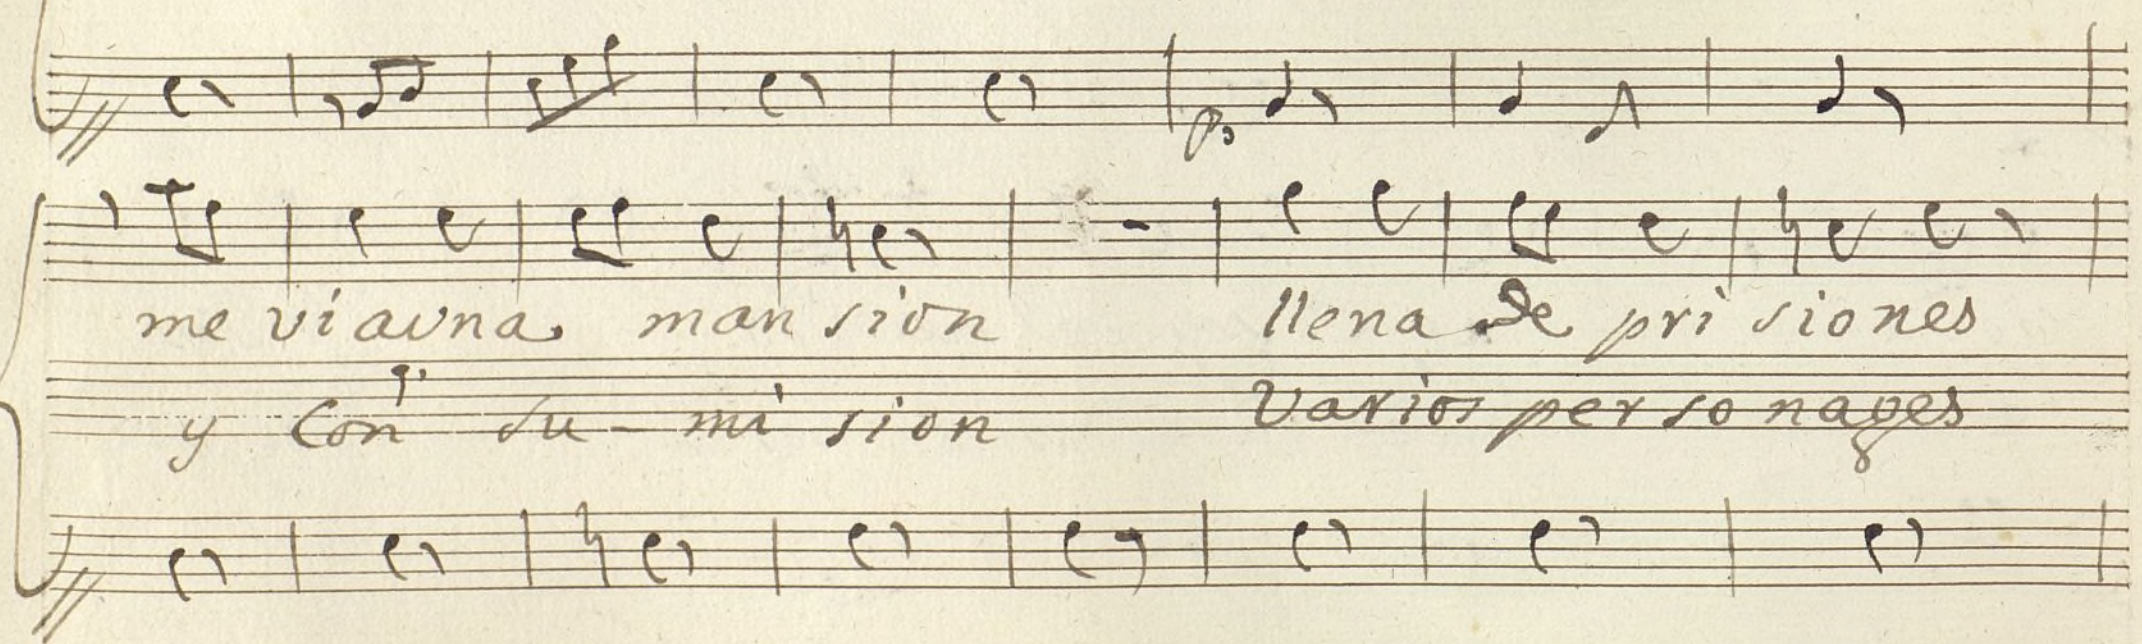 po
me vi a vna man sion llena de pri siones
y Con su - mi sion Varios per so nages